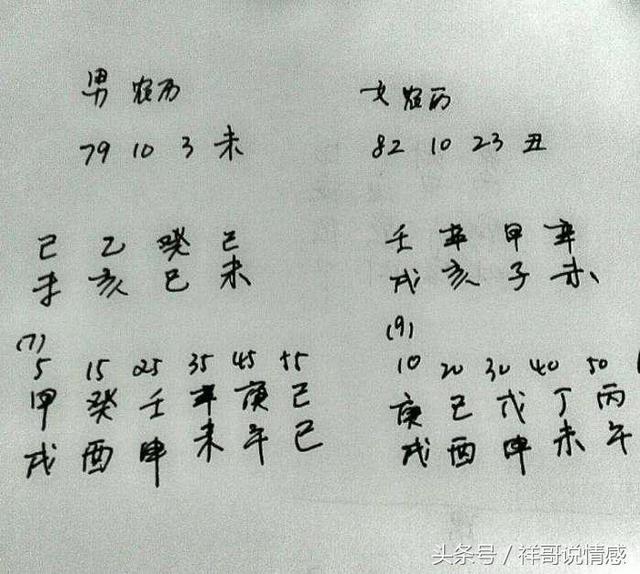 男 农历
79 10 3 未
己 乙 癸 己
未 亥 巳 未
(7)
5 15 25 35 45 55
甲 癸 壬 辛 庚 己
戌 酉 申 未 午 巳
女 农历
82 10 23 丑
壬 辛 甲 辛
戌 亥 子 未
(9)
10 20 30 40 50
庚 己 戊 丁 丙
戌 酉 申 未 午
头条号 / 祥哥说情感